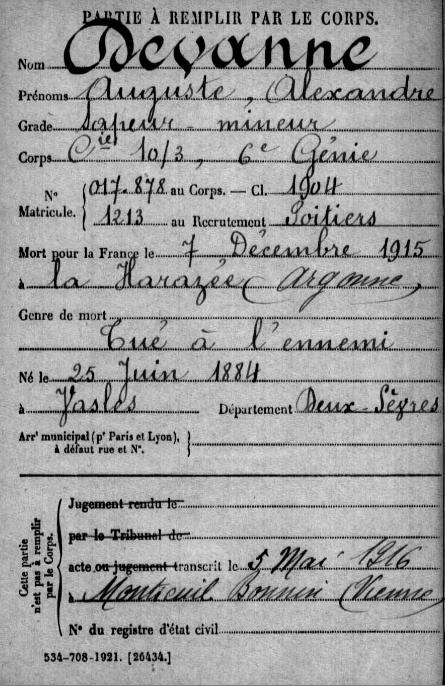 PARTIE À REMPLIR PAR LE CORPS.
Nom Devanne
Prénoms Auguste, Alexandre
Grade sapeur-mineur
Corps Cie 10/3, 6e Génie
N° Matricule. { 017.878 au Corps. — Cl. 1904
1213 au Recrutement Poitiers
Mort pour la France le 7 Décembre 1915
à la Harazée (Argonne)
Genre de mort
Tué à l'ennemi
Né le 25 Juin 1884
à Vasles Département Deux-Sèvres
Arrt municipal (pr Paris et Lyon),
à défaut rue et N°.
Cette partie n'est pas à remplir par le Corps.
Jugement rendu le
par le Tribunal de
acte ou jugement transcrit le 5 Mai 1916
à Montreuil Bonnin (Vienne)
N° du registre d'état civil
534-708-1921. [26434.]